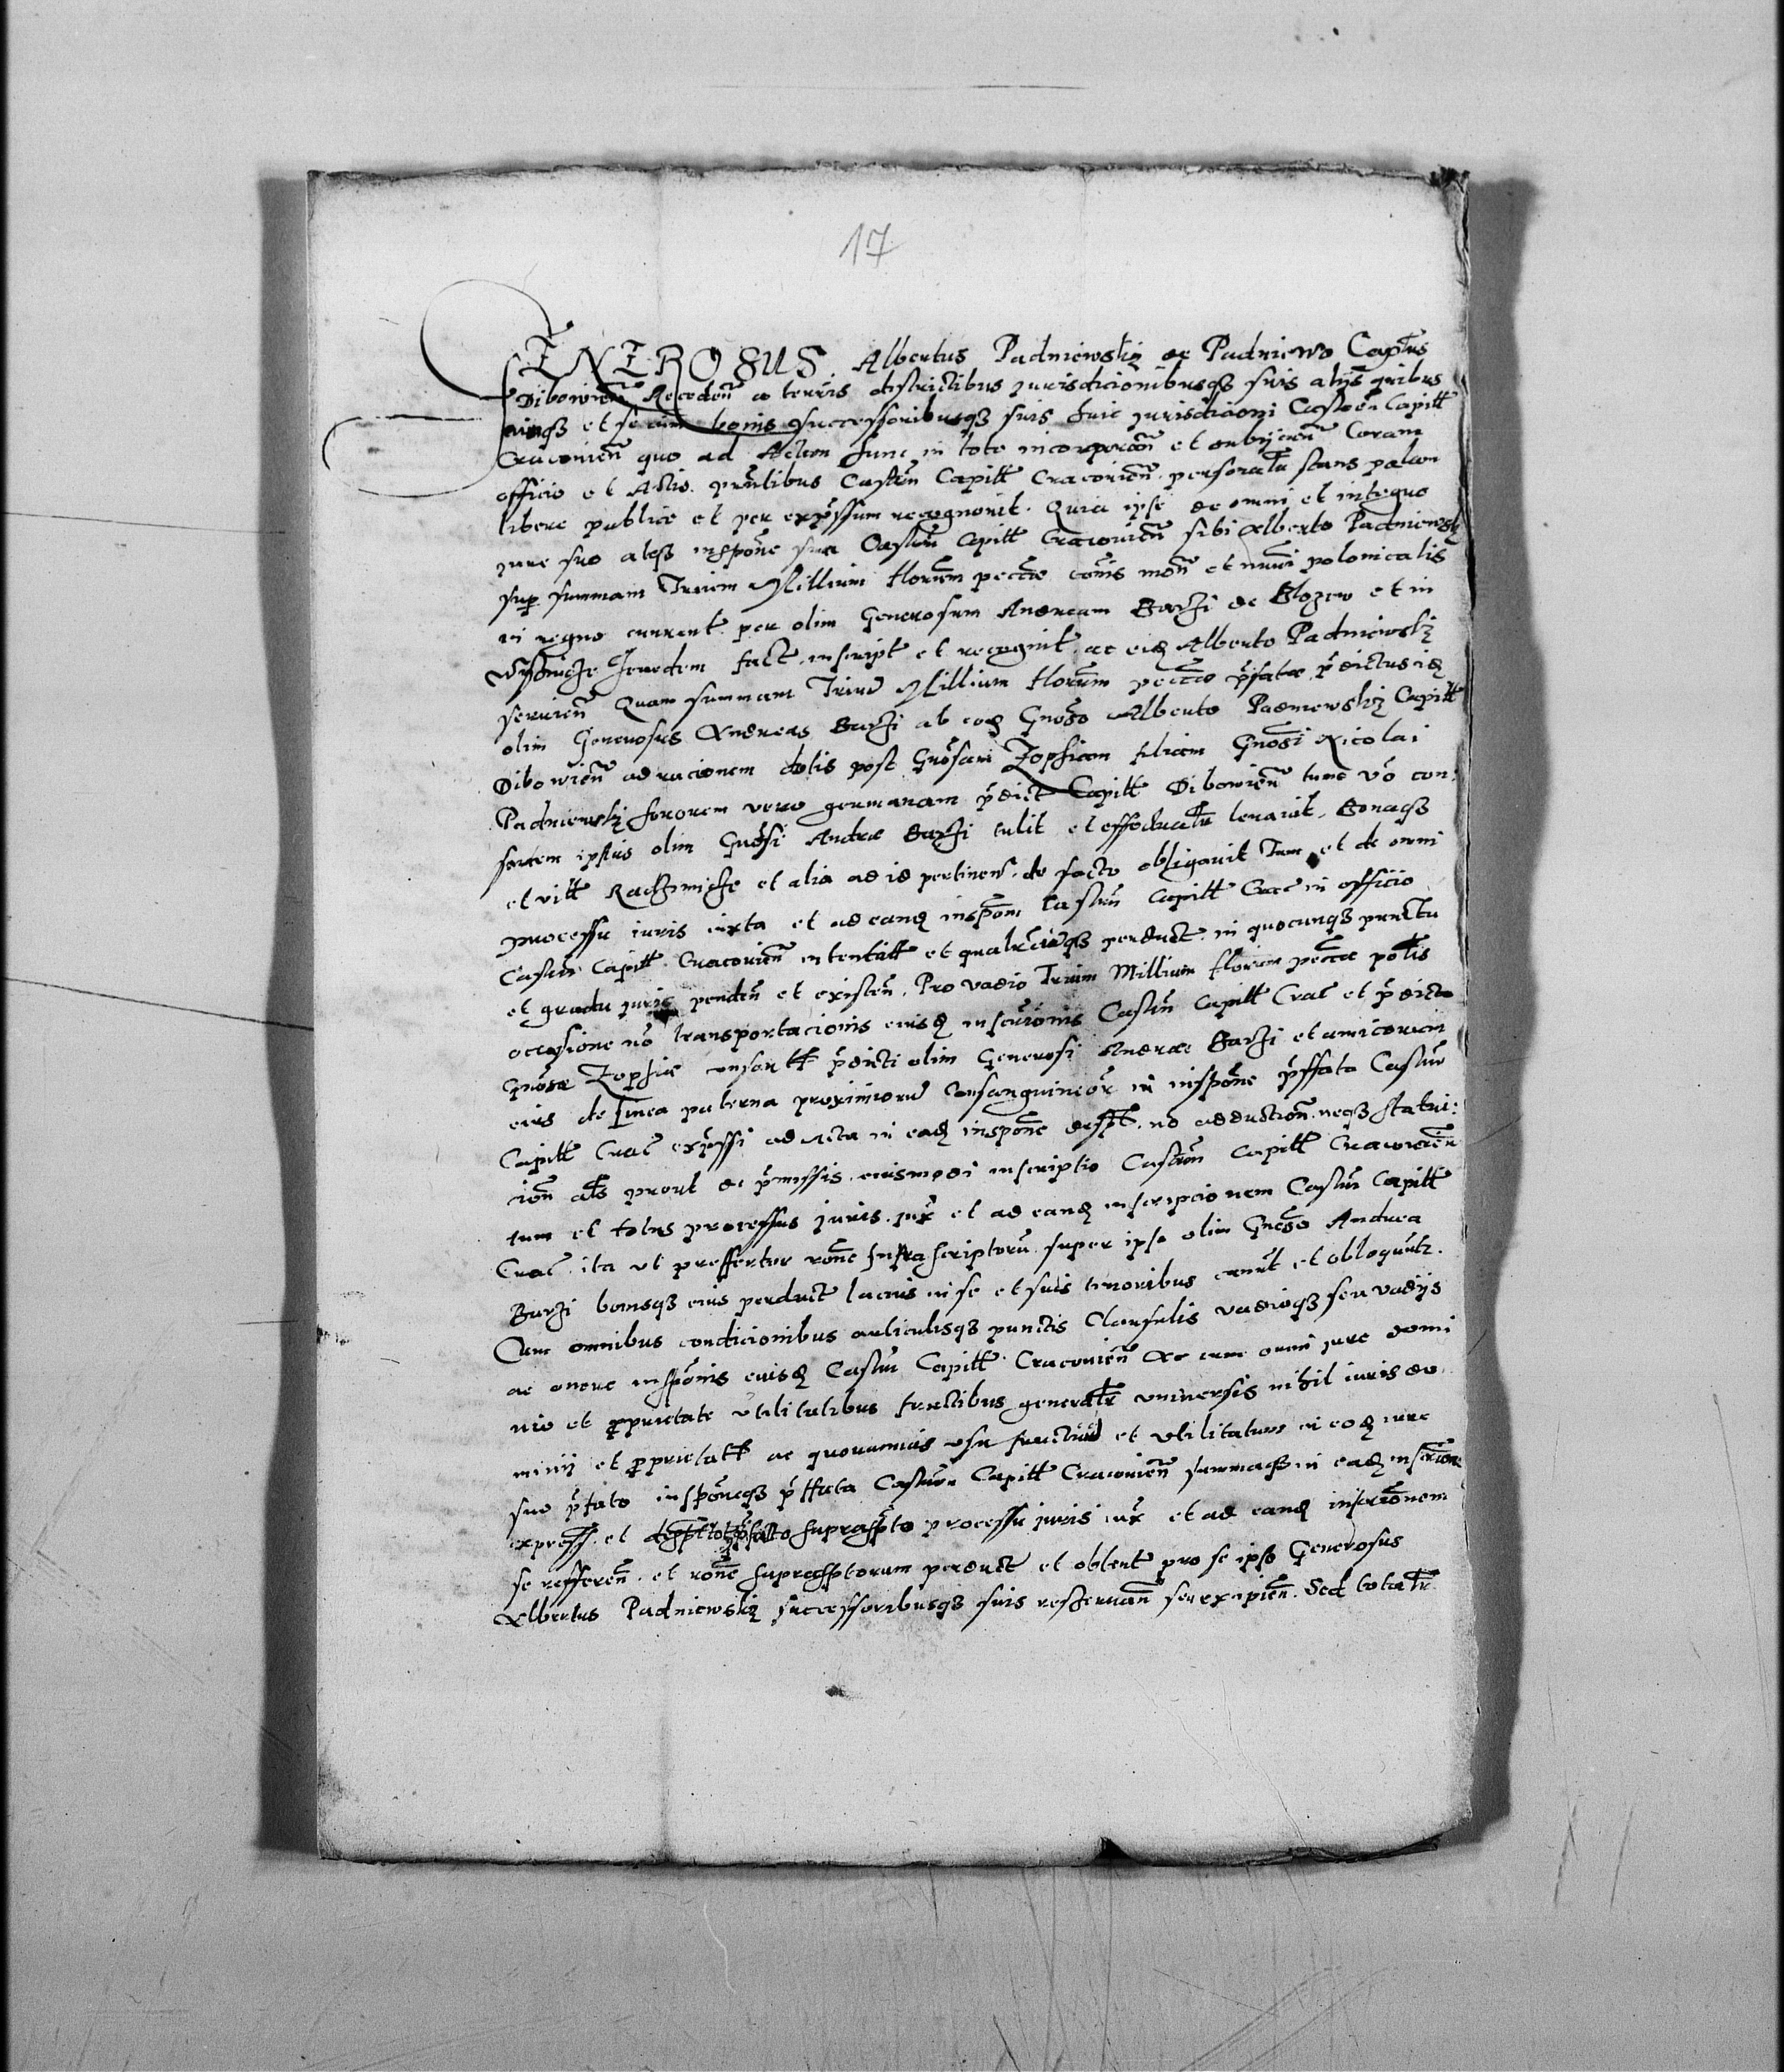 17
GENEROSUS Albertus Padniewskij de Padniewo Capitus
Dibowien̄ Recedeñ a terris districtibus jurisdicionibusqʒ suis alijs quibus
cumqʒ et se cum bonis successoribusqʒ suis huic jurisdicioni Castreñ Capitt
Cracovieñ quo ad Actum hunc in toto incorporañ et subijcieñ Coram
officio et Actis pñtibus Castreñ Capitt Cracovieñ personalr̃ stans palam
libere publice et per expr̃ssum recognovit. Quia ipse de omni et integro
jure suo alqʒ inspone sua Castreñ Capitt Cracovieñ sibi Alberto Padniewskj
sup summam Trium Millium florenm̄ pecc̄e com̄is mon̄ et nūmi polonicalis
in regno current per olim Generosum Andream Barzi de Blozew et in
heredem fact inscript et recognit ac eiđ Alberto Padniewskj
servieñ Quam summam Triuɱ Millium florum̄ pecc̄ie p̄fatæ p̄dictus iđ
olim Generosus Andreas Barzi ab eođ Gnōso Alberto Padniewskij Capitt
Dibowieñ ad racionem dotis post Gnōsam Zophiam filiam Gnōsi Nicolai
Padniewskj sororem vero germanam p̄dict Capitt Dibowieñ tunc vō con:
sortem ipsius olim Gnōsi Andreæ Barzi tulit et effectualr̃ levavit. Bonaqʒ
et vitt et alia ad id pertineñ de facto obligavit Tum et de omni
processu iuris iuxta et ad eanđ inspōm Castreñ Capitt Crac̄ in officio
Castreñ Capitt Cracovieñ intentatt et qualr̃cūqʒ perduct in quocunqʒ punctu
et gradu juris pendeñ et existeñ. Pro vadio Trium Millium florum pecc̄æ pol̄is
occasione nō transportacionis eiusđ inscrōnis Castreñ Capitt Crac̄ et p̄dicta
Gnōsæ Zophiæ consortt p̄dicti olim Generosi Andreæ Barzi et amicorum
eius de linea paterna proximiorū Consanguineor̄ in inspōne p̄ffata Castreñ
Capitt Crac̄ exp̄ssi ad acta in eađ inspōne nō adductioñ neqʒ statui:
cioñ als prout de p̄missis eiusmodi inscriptio Castreñ Capitt Cracovieñ
tum et totus processus juris jux̄ et ad eanđ inscripcionem Castreñ Capitt
Crac̄ ita ut preffertur rōne Infrascriptorū super ipso olim Gnōso Andrea
Barzi bonisqʒ eius perduct lacius in se et suis tenoribus canūt et obloquūtr.
Cum omnibus condicionibus articulisqʒ punctis Clausulis vadioqʒ seu vadijs
ac onere inspōnis eiusđ Castreñ Capitt Cracovieñ Ac cum omni jure domi
nio et proprietate utilitatibus fructibus generalr̃ universis nihil iuris do
minij et proprietatt ac quovismuis usu fructuū et utilitatum in eođ iure
suo p̄fato inspōneqʒ p̄ffata Castreñ Capitt Cracovieñ summaqʒ in eađ inscrōne
express et suprasp̄to processu juris iux̄ et ad eanđ inscrōnem
se reffereñ et rōne suprasp̄torum perduct et obtent pro se ipso Generosus
Albertus Padniewskij successoribusqʒ suis reservañ seu excipieñ. Sed totalr̃